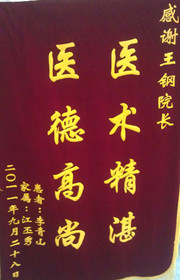 感谢王钢院长
医术精湛
医德高尚
患者：李青山
家属：江丕秀
二〇一一年九月二十八日